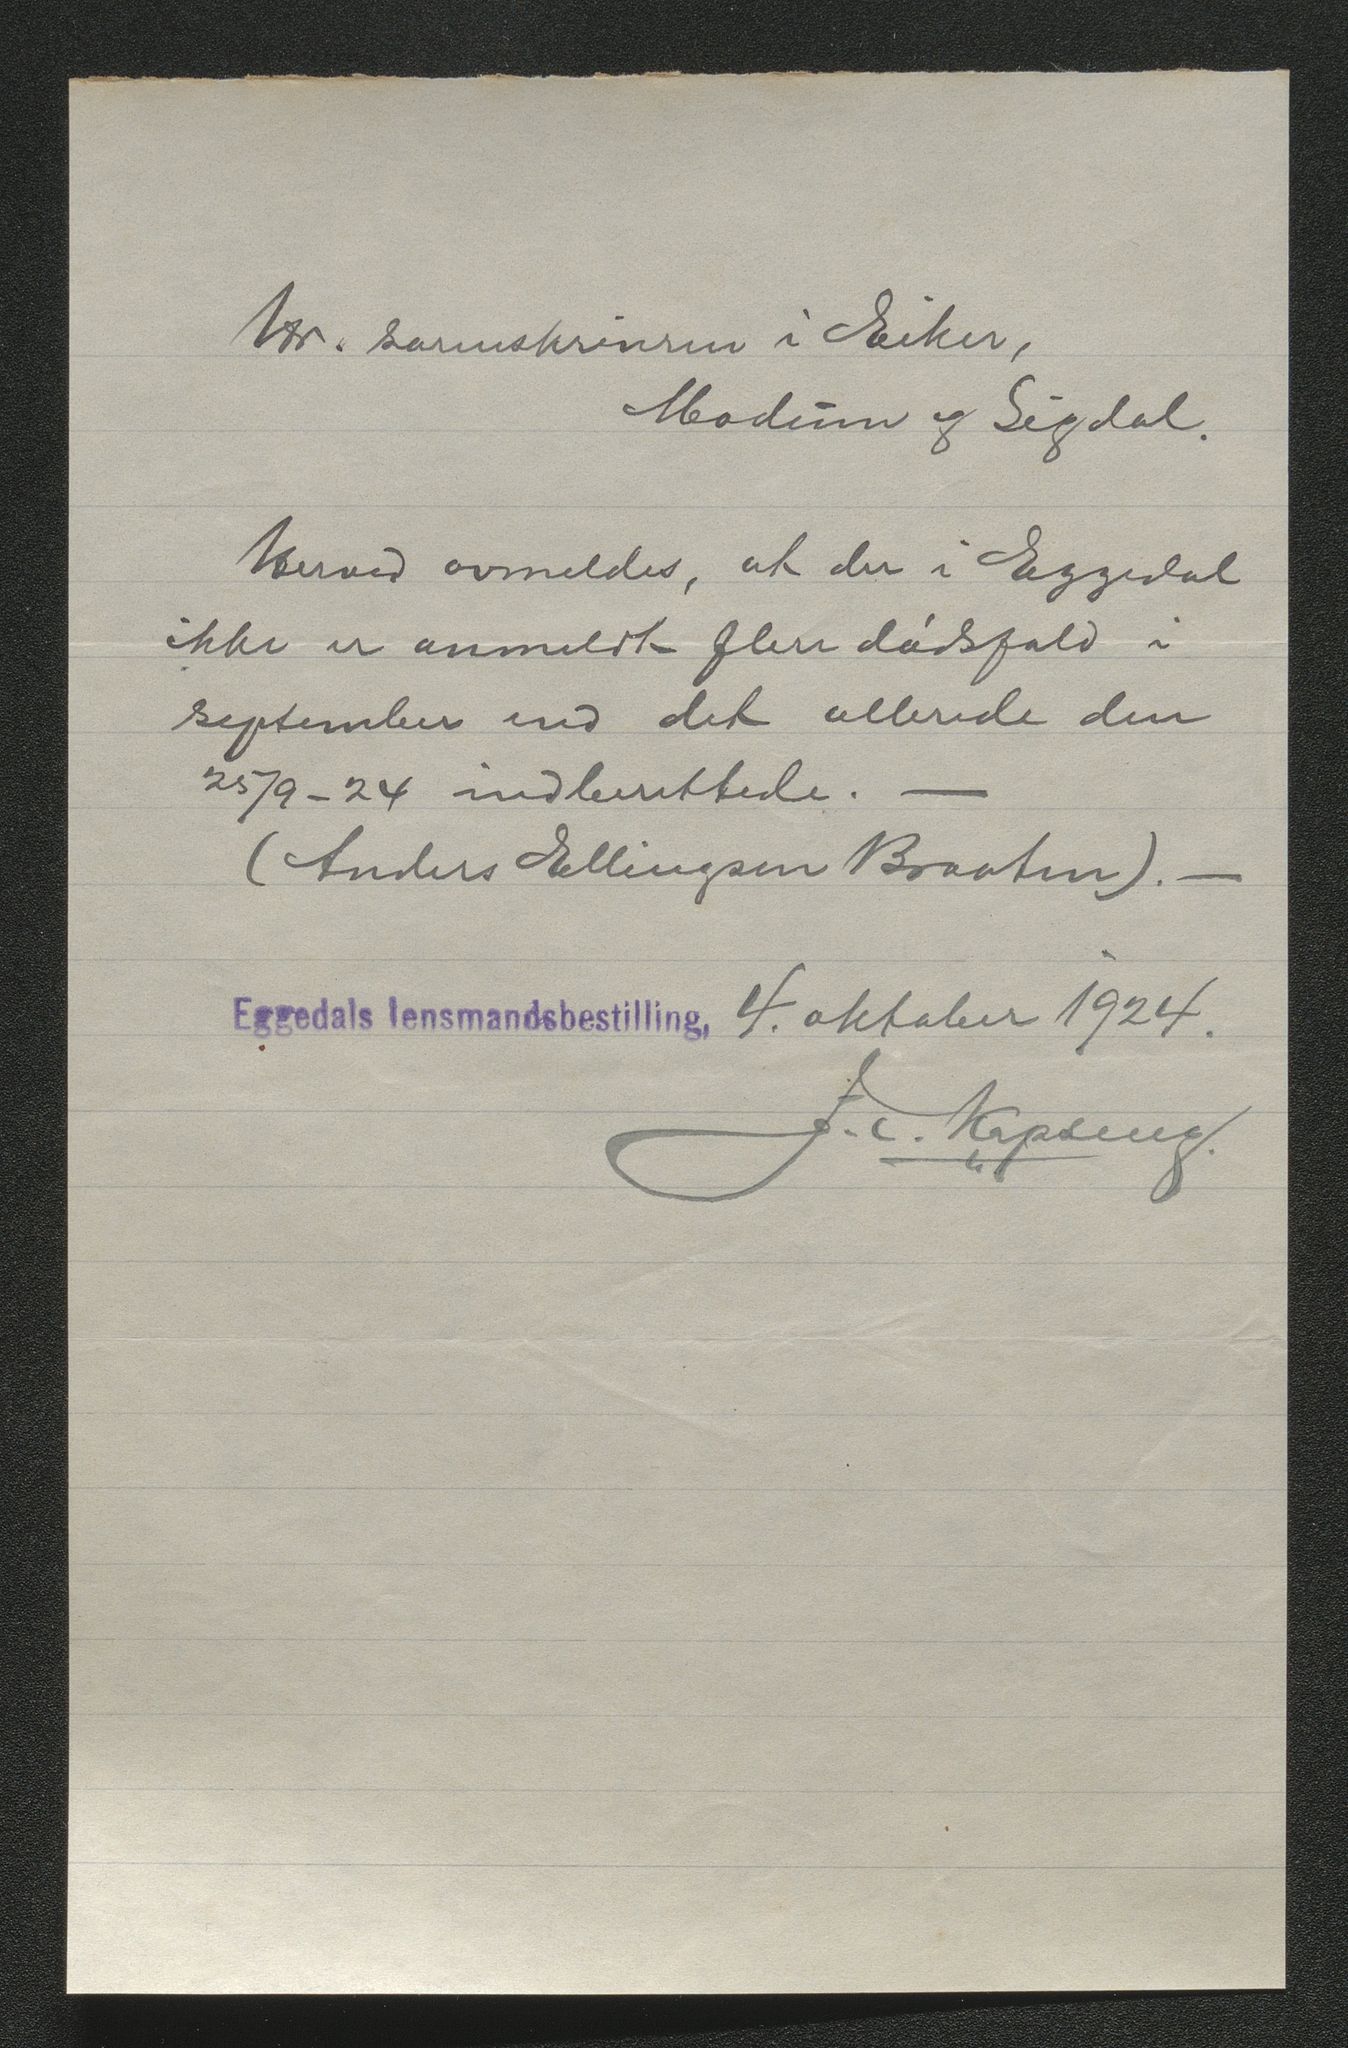 Hr. sorenskriveren i Eiker,
Modum og Sigdal.
Herved avmeldes, at der i Eggedal
ikke er anmeldt flere dødsfald i
september end det allerede den
25/9-24 indberettede. —
(Anders Ellingsen Braaten). —
Eggedals lensmandsbestilling, 4. oktober 1924.
J. C.